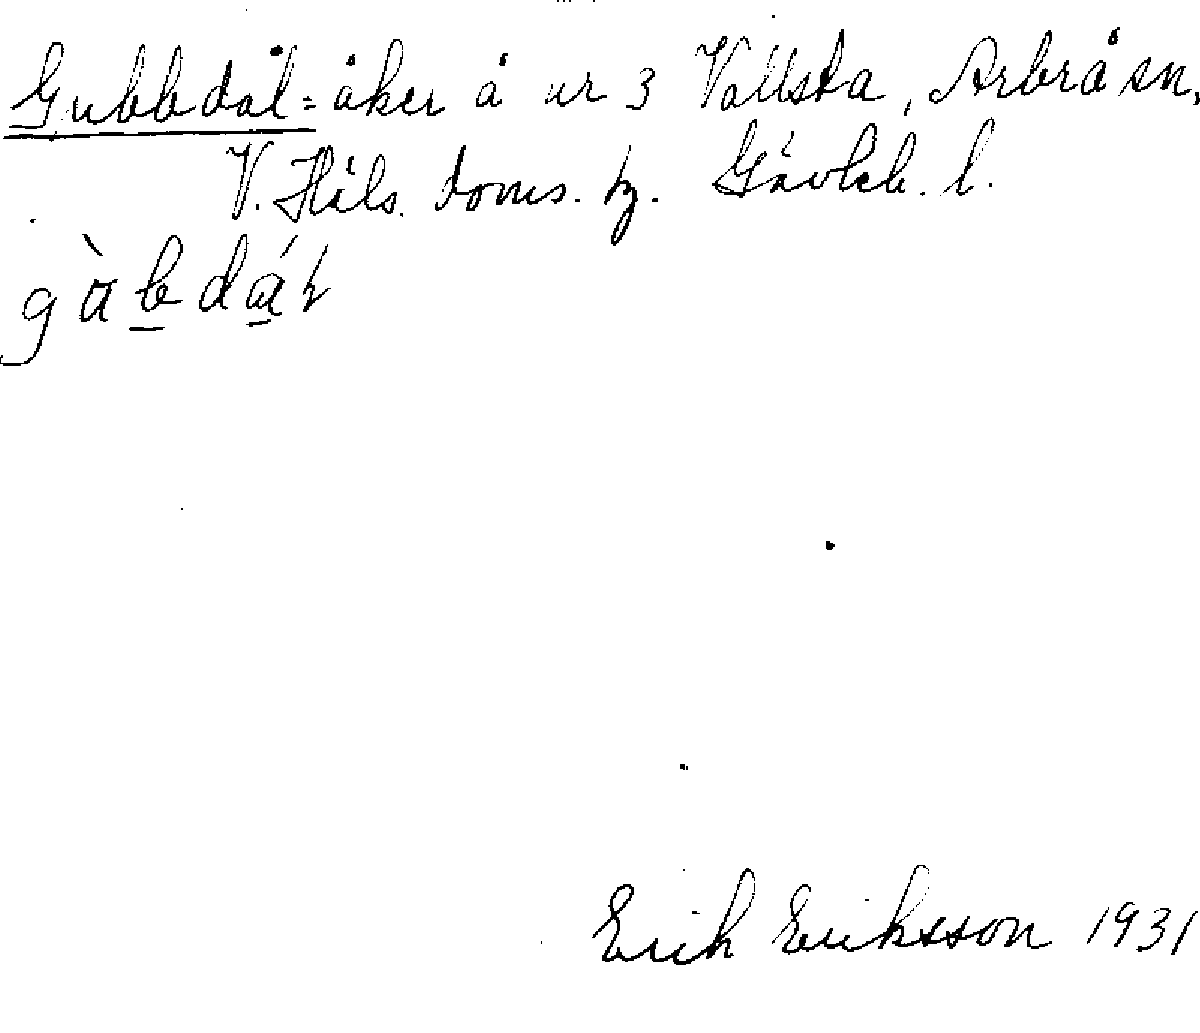 Gubbdal = åker å nr 3 Vallsta, Arbrå sn,
V. Häls. doms. tg. Gävleb. l.
Erik Eriksson 1931